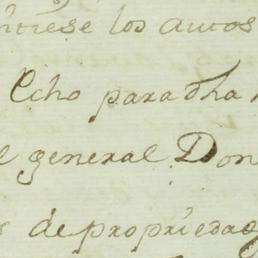 ntiese los autos
Echo para dha
l general Don
s de propriedad